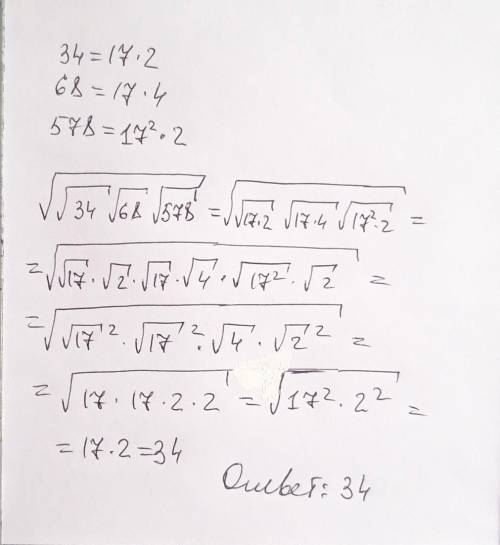 34 = 17 · 2
68 = 17 · 4
578 = 17² · 2
√(√34 √68 √578) = √(√(17·2) √(17·4) √(17²·2)) =
= √(√17 · √2 · √17 · √4 · √17² · √2) =
= √(√17² · √17² · √4 · √2²) =
= √(17 · 17 · 2 · 2) = √(17² · 2²) =
= 17 · 2 = 34
Ответ: 34